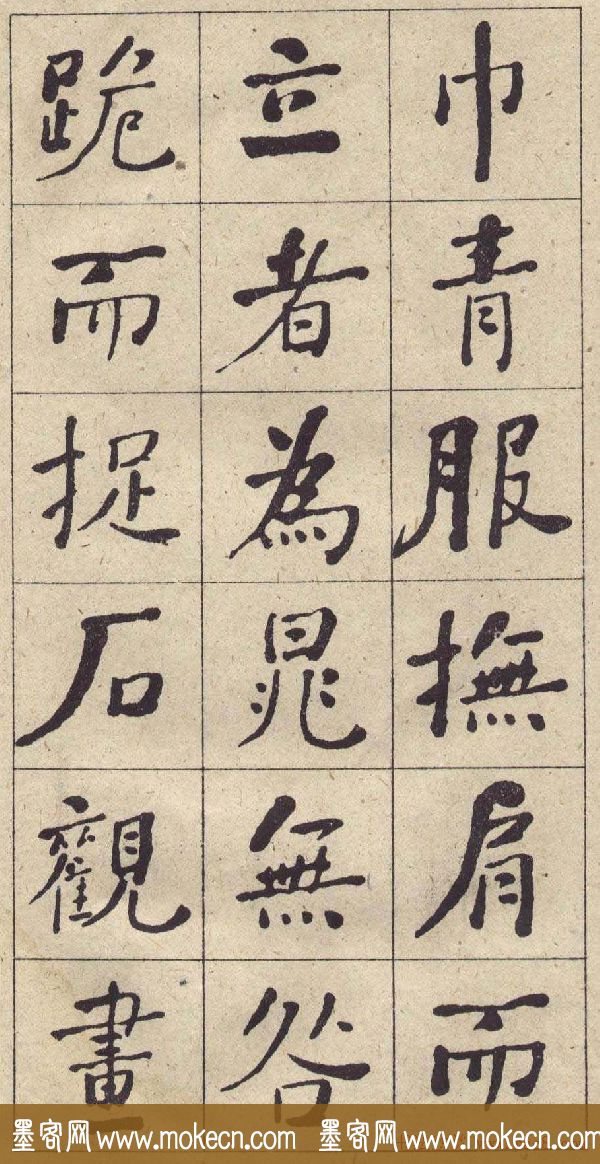 巾青服撫肩而
立者為晁無咎
跪而捉石觀畫
墨客网 www.mokecn.com 墨客网 www.mokecn.com